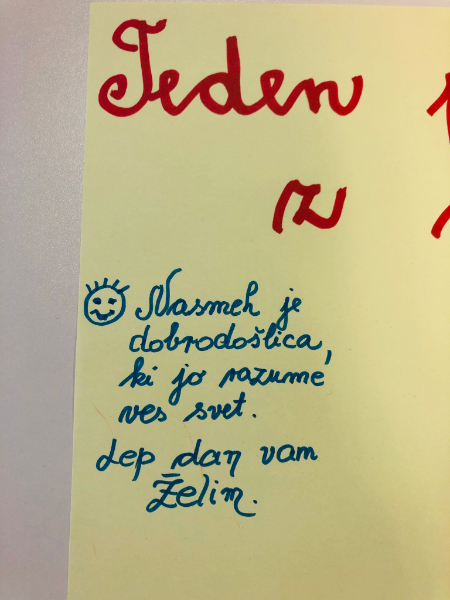 Teden
z
Nasmeh je
dobrodošlica,
ki jo razume
ves svet.
Lep dan vam
želim.